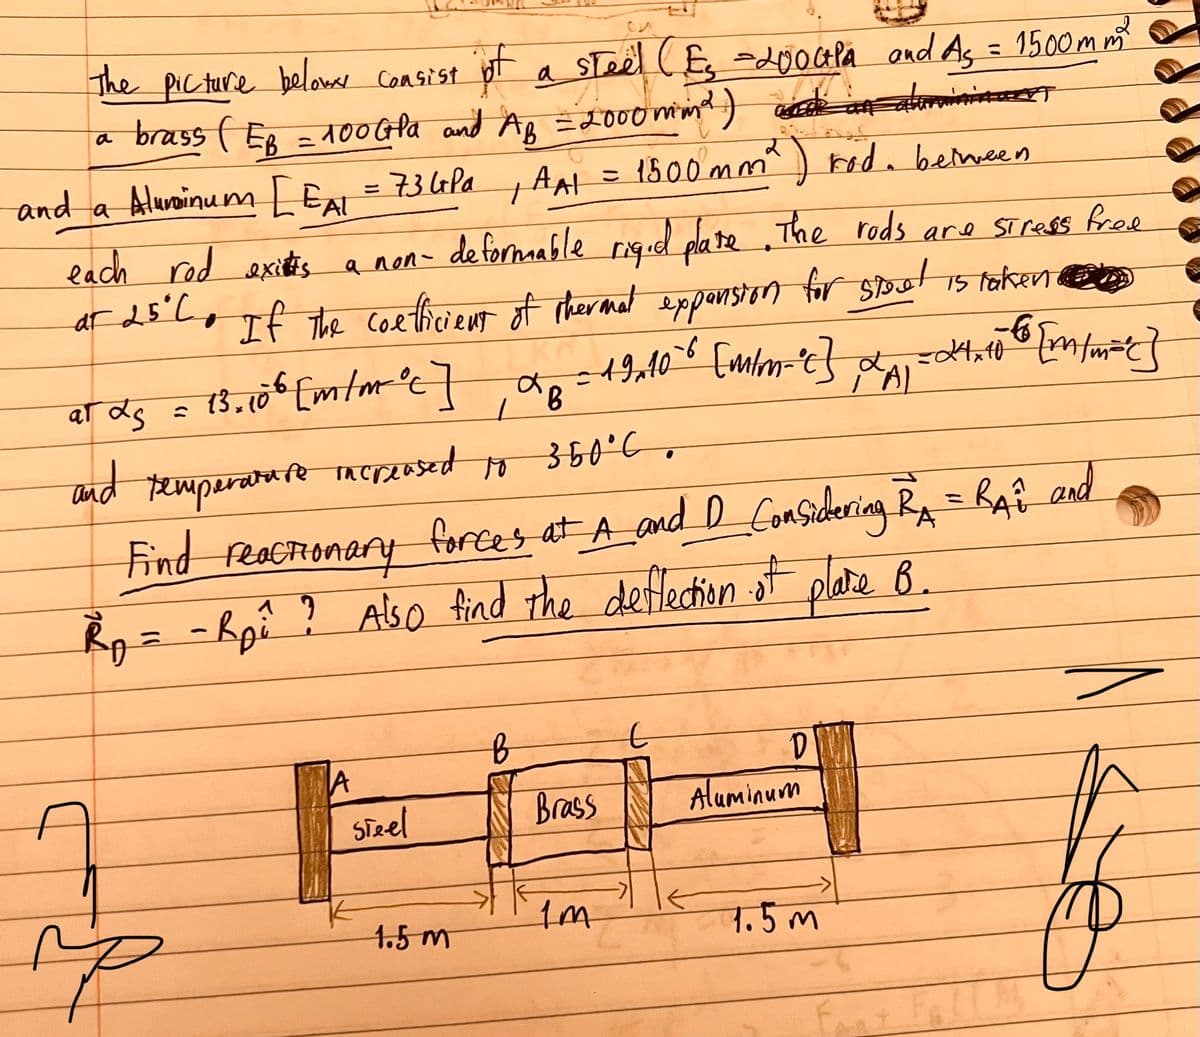 The picture below consist of a steel ( Es = 200 GPa and As = 1500 mm²
a brass ( EB = 100 GPa and AB = 2000 mm² )
and a Aluminum [ EAl = 73 GPa , AAl = 1500 mm² ) rod. between
each rod exists a non-deformable rigid plate. The rods are stress free
at 25°C. If the coefficient of thermal expansion for steel is taken
at αs = 13×10⁻⁶ [m/m-°C] , αB = 19×10⁻⁶ [m/m-°C] , αAl = 24×10⁻⁶ [m/m-°C]
and temperature increased to 350°C.
Find reactionary forces at A and D Considering R⃗A = RA î and
R⃗D = -RD î ? Also find the deflection of plate B.
B C
A D
Steel Brass Aluminum
1.5 m 1m 1.5 m